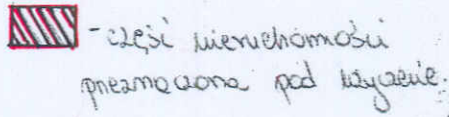 - część nieruchomości
przeznaczona pod użyczenie.